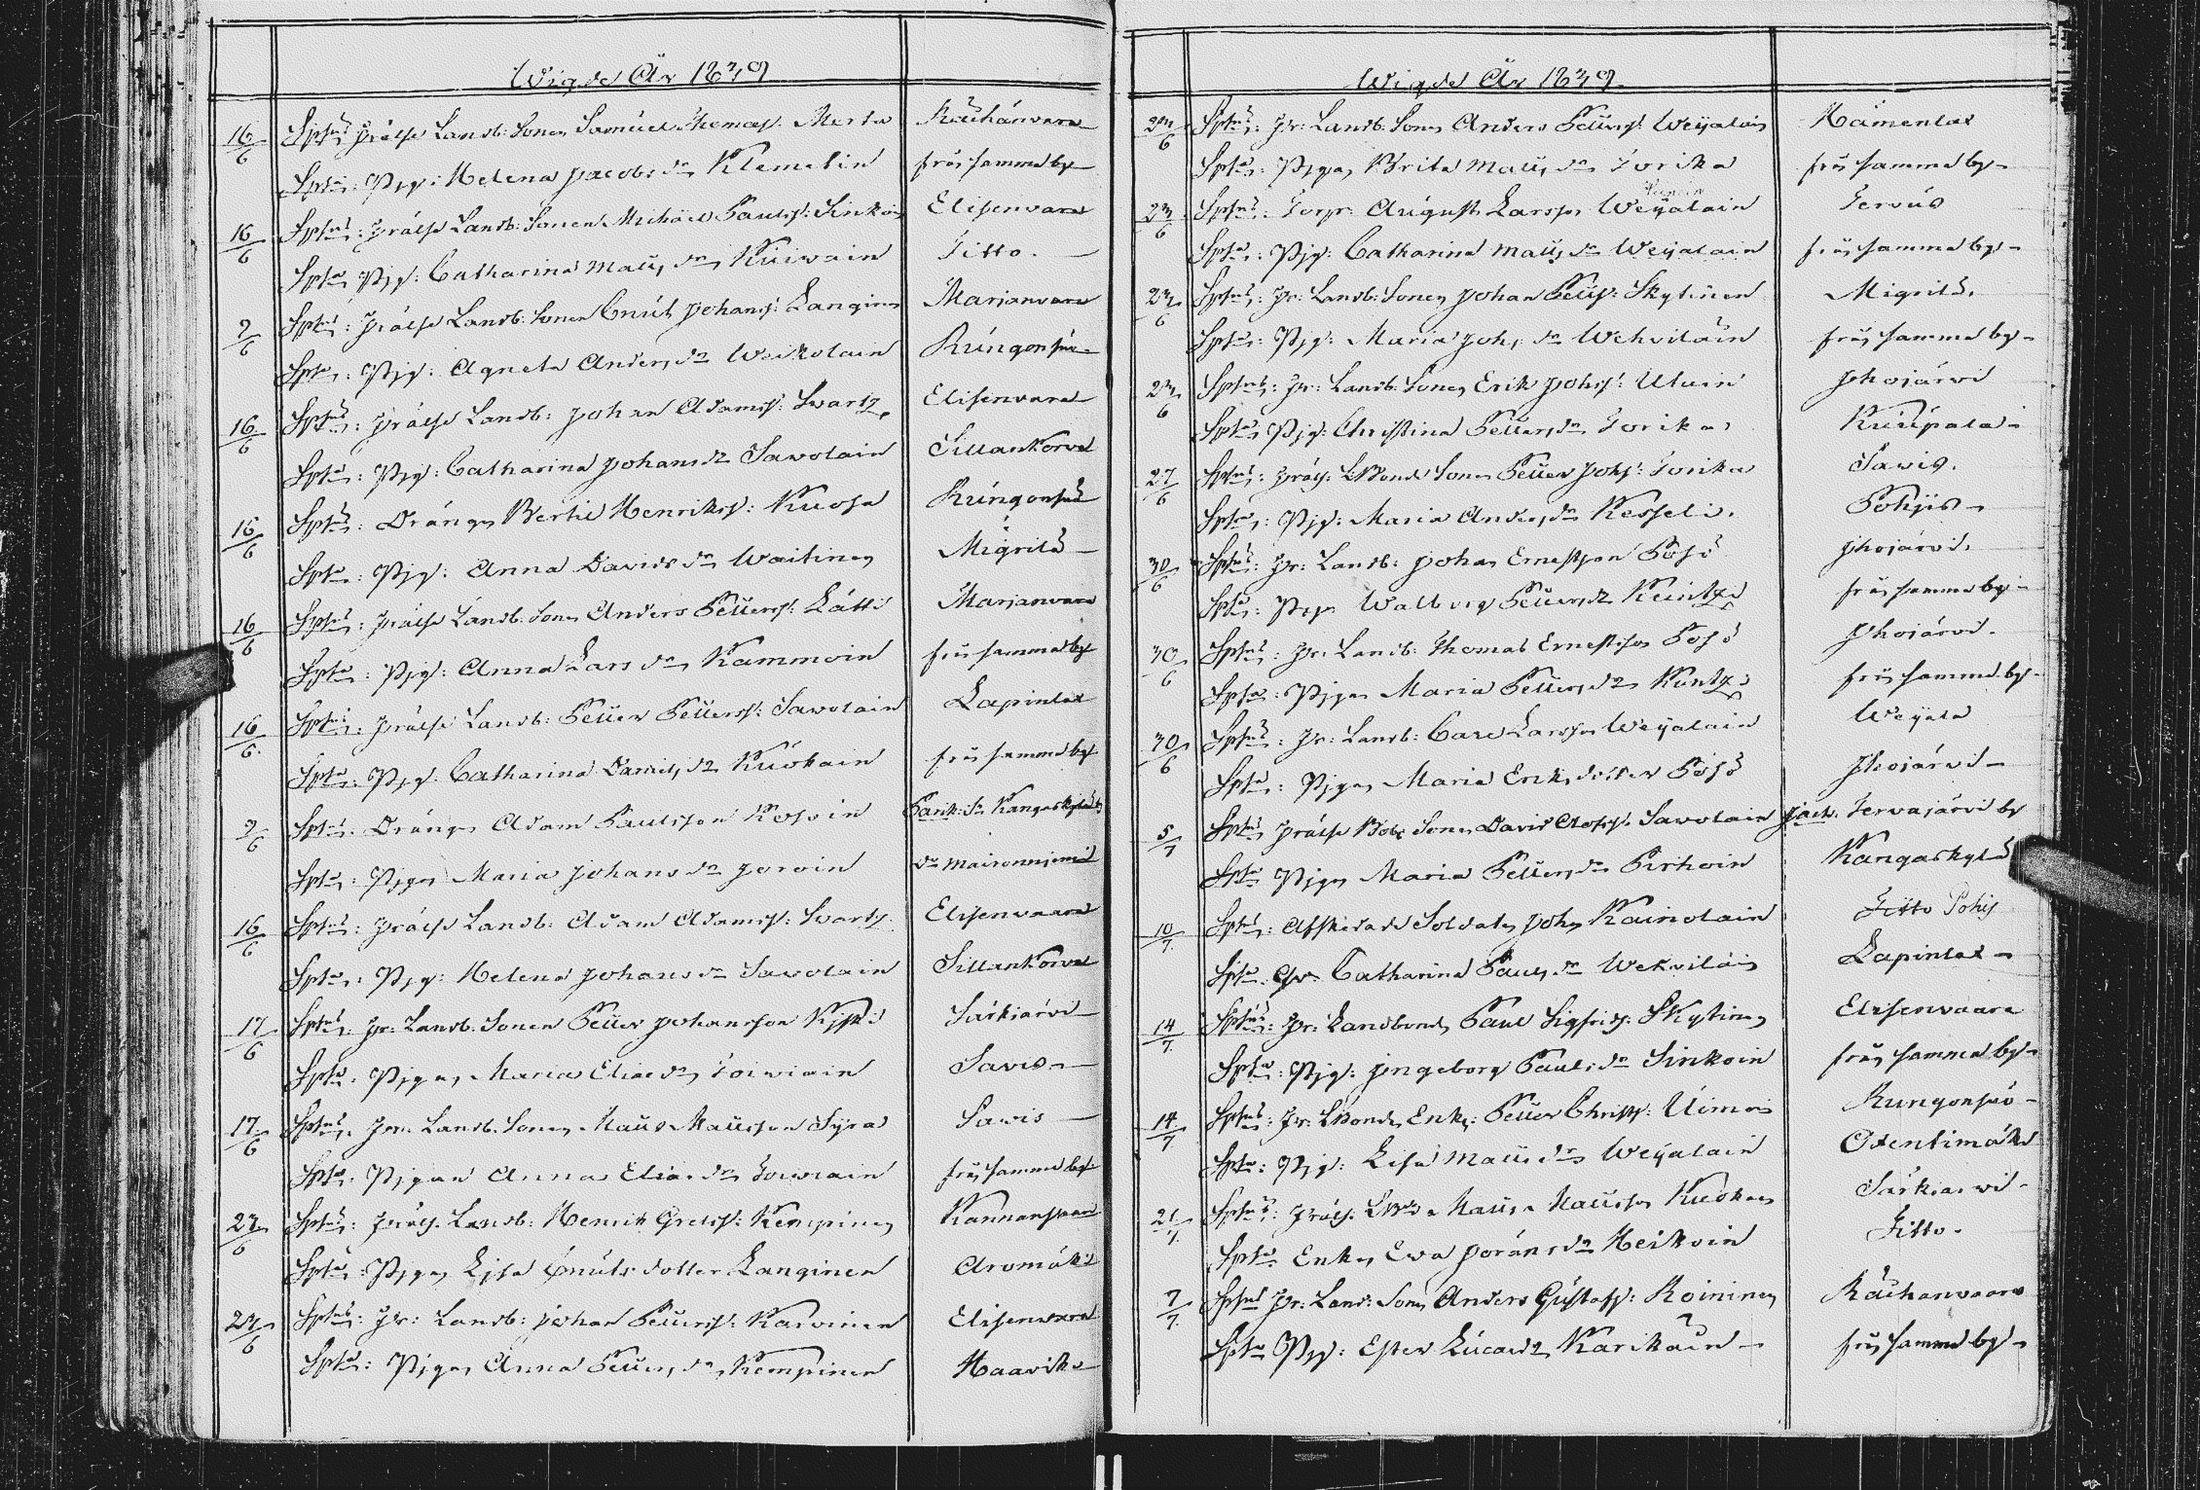 Wigde År 1839
16/6 Spts: Frälse Landb: Sonen Samuel Thomass: Mesta Räihänvara
Spta: Pig: Helena Jacobs dr Klemelin från samma by
16/6 Spts: Frälse Landb: Sonen Michael Paulss: Sinkoin Elisenvara
Spta Pig: Catharina Matts dr Kuiwain Ditto
2/6 Spts: Frälse Landb: Sonen Cnut Johanss: Langinen Marjanvara
Spta: Pig: Agneta Anders dr Weikolain Rungonsuo
16/6 Spts: Frälse Landb: Johan Adamss: Swartz Elisenvara
Spta: Pig: Catharina Johans dr Sawolain Sillankorva
16/6 Spts: Drängen Bertil Henrikss: Kuosa Rungonsuo
Spta: Pig: Anna Davids dr Waitinen Migrilä
16/6 Spts: Frälse Landb: Sonen Anders Petterss: Lätti Marjanvara
Spta: Pig: Anna Lars dr Kammoin från samma by
16/6 Spts: Frälse Landb: Petter Petterss: Sawolain Lapinlax
Spta: Pig: Catharina Daniels dr Kuokain från samma by
2/6 Spts: Drängen Adam Paulsson Kosoin Parik: Sn Kangaskylä by
Spta: Pigan Maria Johans dr Joroin
16/6 Spts: Frälse Landb: Adam Adamss: Swartz Elisenvaara
Spta: Pig: Helena Johans dr Sawolain Sillankorva
17/6 Spts: Fr: Landb: Sonen Petter Johansson Särkiärvi
Spta: Pigan Maria Elias dr Toiwiain Savis
17/6 Spts: Fr: Landb: Sonen Matts Mattsson Syra Savis
Spta: Pigan Anna Elias dr Toiwiain från samma by
23/6 Spts: Fräls: Landb: Henrik Grelss: Kempinen
Spta: Pigan Lisa Cnuts dotter Langinen Aromäki
23/6 Spts: Fr: Landb: Johan Petterss: Karvinen Elisenvara
Spta: Pigan Anna Petters dr Kempinen Haavikko
Wigde År 1839.
23/6 Spts: Fr: Landb: Sonen Anders Petterss: Weijalain Hämenlax
Spta: Pigan Brita Matts dr Torika från samma by
23/6 Spts: Torpr: August Larsson Weijalain Tervus
Spta: Pig: Catharina Matts dr Weijalain från samma by
23/6 Spts: Fr: Landb: Sonen Johan Petterss: Skytinen Migrilä
Spta: Pig: Maria Johs dr Wehviläin från samma by
23/6 Spts: Fr: Landb: Sonen Erik Johss: Ulvin Ihojärvi
Spta: Pig: Christina Petters dr Torika Kuuppala
27/6 Spts: Fräls: LBonde Sonen Petter Johss: Torika Savis.
Spta: Pig: Maria Anders dr Kesseli. Pohjis
30/6 Spts: Fr: Landb: Johan Ernestson Pösö Ihojärvi.
Spta: Pig: Walborg Petters dr från samma by
30/6 Spts: Fr: Landb: Thomas Ernestson Pösö Ihojärvi.
Spta: Pigan Maria Petters dr från samma by
30/6 Spts: Fr: Landb: Carl Larsson Weijalain Weijala
Spta: Pigan Maria Eriks dotter Pösö Ihojärvi
5/7 Spts Frälse Bobs Sonen David Olofss: Sawolain Jack. Tervajärvi by
Spta Pigan Maria Petters dr Pirhoin Kangaskylä
10/7 Spts: Afskedade Soldaten Johan Rainolain Ditto Pohjs
Spta: Catharina Pauls dr Wehviläin Lapinlax
14/7 Spts: Fr: Landbonden Paul Sigfridss: Skytinen Elisenvaara
Spta: Pig: Ingeborg Pauls dr Sinkoin från samma by
14/7 Spts: Fr: LBonden Enkl: Petter Christss: Uimoin Rungonsuo
Spta: Pig: Lisa Matts dr Weijalain Oxentimäki
21/7 Spts: Fräls: Matts Mattsson Kuokan Särkiärvi
Spta Enkan Ewa Görans dr Heikoin Ditto.
7/7 Spts Fr: Land: Sonen Anders Gustafss: Roininen Räihänvaara
Spta Pig: Ester Lucas dr Karikain från samma by